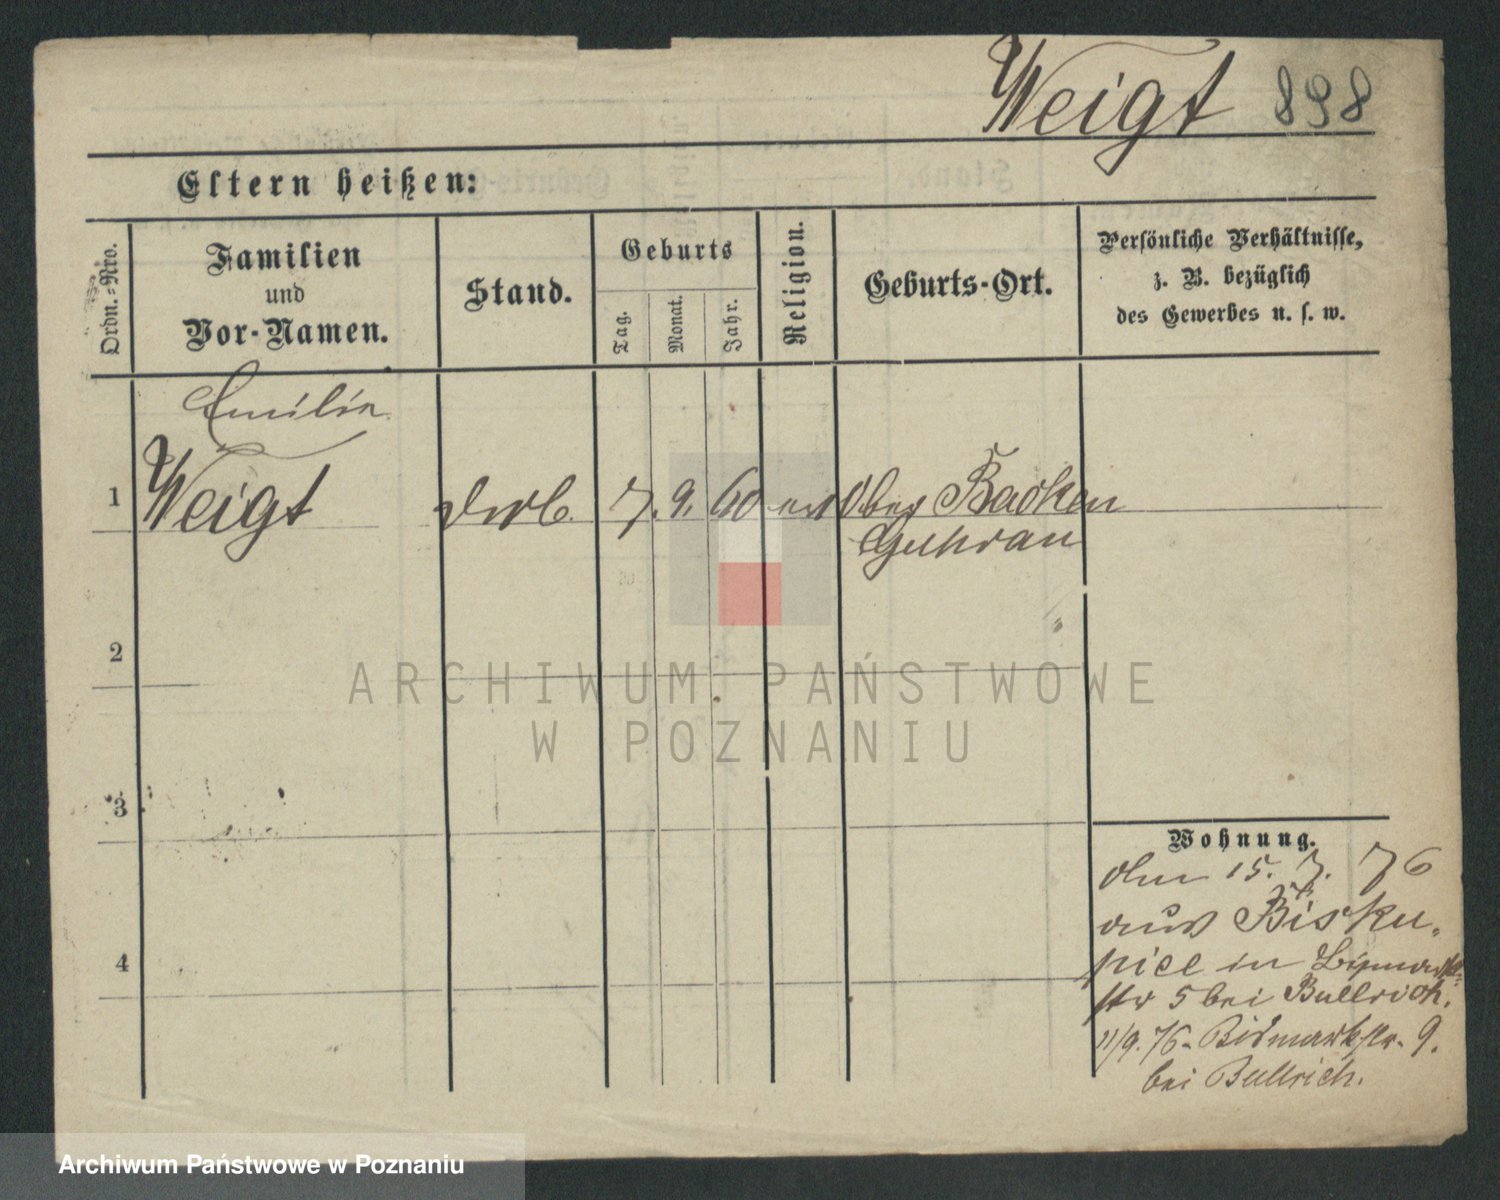 Weigt 898
Eltern heißen:
Ordn.-Nro.
Familien
und
Vor-Namen.
Stand.
Geburts
Tag.
Monat.
Jahr.
Religion.
Geburts-Ort.
Persönliche Verhältnisse,
z. B. bezüglich
des Gewerbes u. s. w.
Emilie
1 Weigt 7. 9. 60 Ober Backen
Guhrau
2
3
4
Wohnung.
15. 7. 76
aus Bisku-
pice in
str 5 bei Bullrich.
11/9. 76. Bismarkstr. 9.
bei Bullrich.
ARCHIWUM PAŃSTWOWE
W POZNANIU
Archiwum Państwowe w Poznaniu